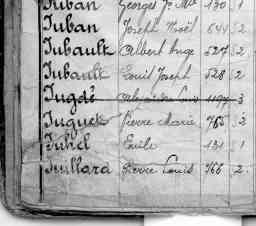 Juban Georges J. M. 130 1
Juban Joseph Noël 644 2
Jubault Albert Ange 527 2
Jubault Louis Joseph 528 2
Jugdé Louis 1197 3
Juguet Pierre Marie 765 2
Juhel Emile 131 1
Juillard Pierre Louis 766 2